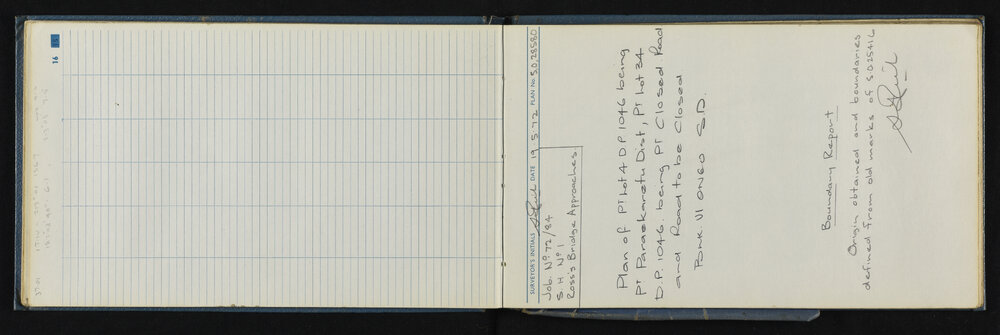 16
SURVEYOR'S INITIALS DATE 19.5.72 PLAN No. S.O. 28580
Job. Nº 72/84
S.H Nº 1
Ross's Bridge Approaches
Plan of Pt Lot 4 DP 1046 being
Pt Paraekaretu Dist, Pt Lot 34
D.P. 1046. being Pt Closed Road
and Road to be Closed
Bank VI ONGO S.D.
Boundary Report
Origin obtained and boundaries
defined from old marks of S.O 25416